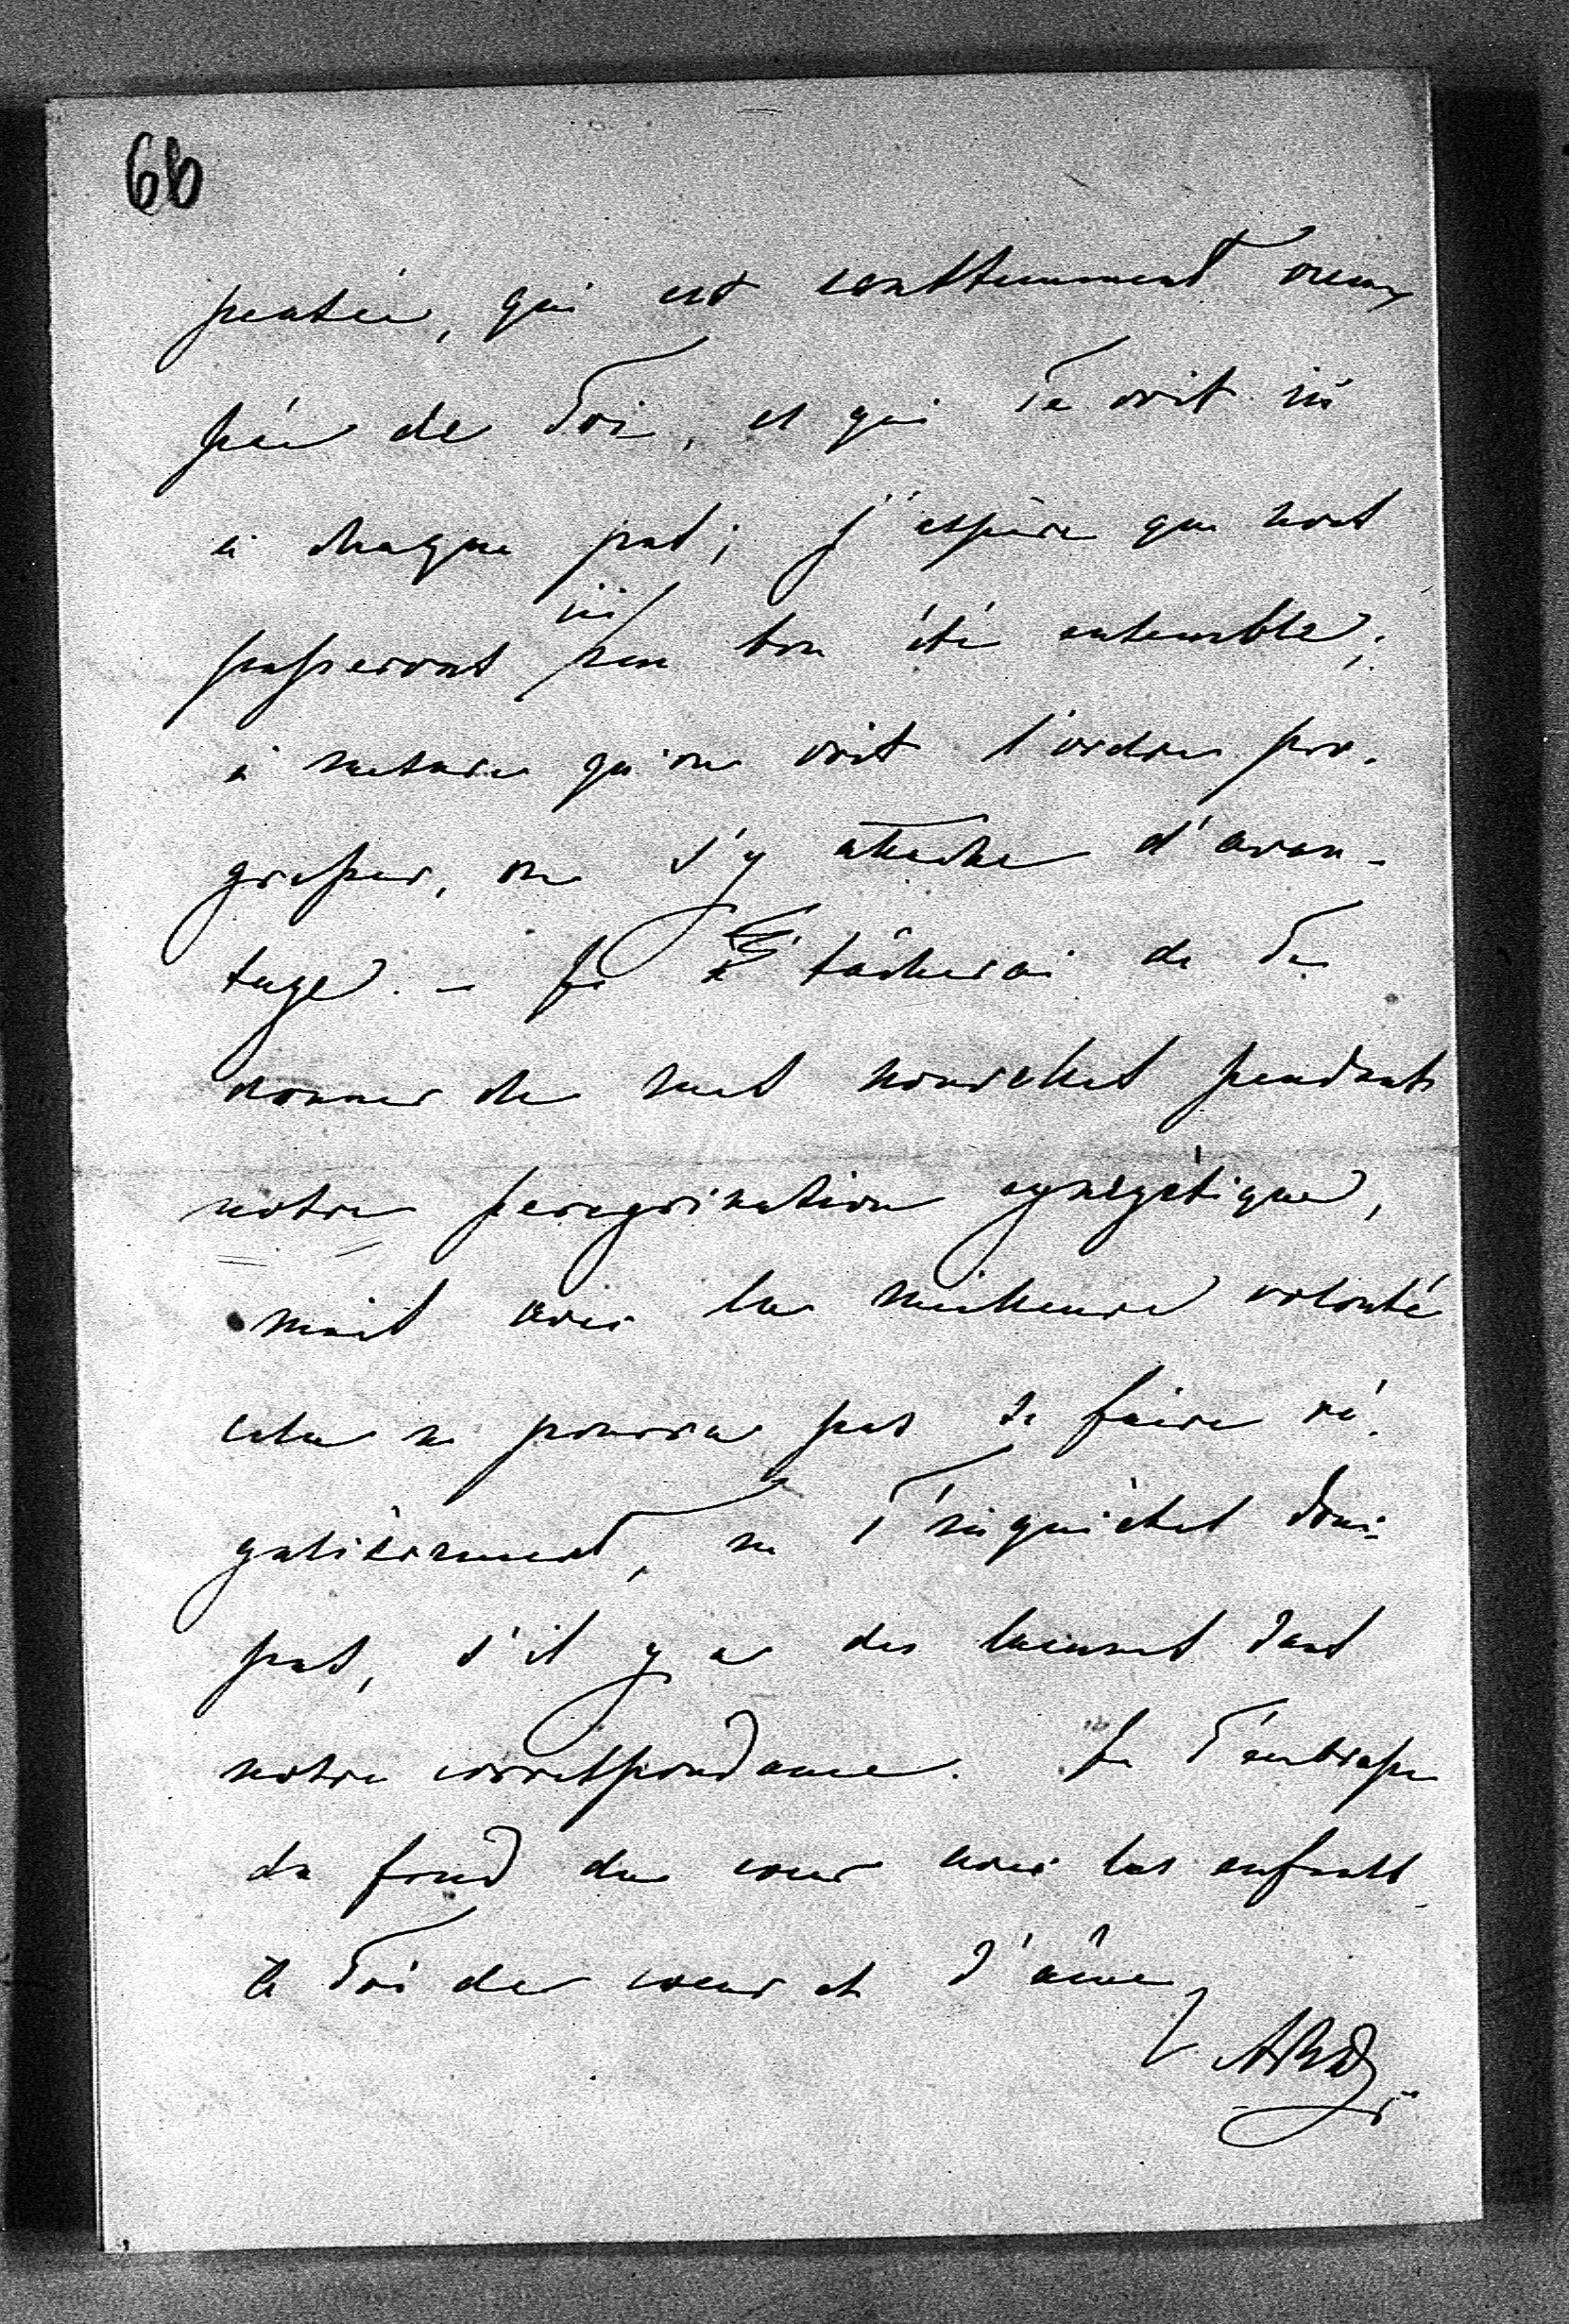 66
pensée, qui est constamment occu-
pée de Toi, et qui Te voit ici
à chaque pas; j'espère que nous
passerons ici un bon été ensemble;
à mesure qu'on voit l'ordre pro-
gresser, on s'y attache d'avan-
tage. – Je tâcherai de Te
donner de mes nouvelles pendant
notre peregrination cynégétique,
mais avec la meilleure volonté
cela ne pourra pas se faire ré-
gulièrement, ne T'inquiètes donc
pas, s'il y a des lacunes dans
notre correspondance. Je T'embrasse
du fond du coeur avec les enfants
à Toi de coeur et d'âme